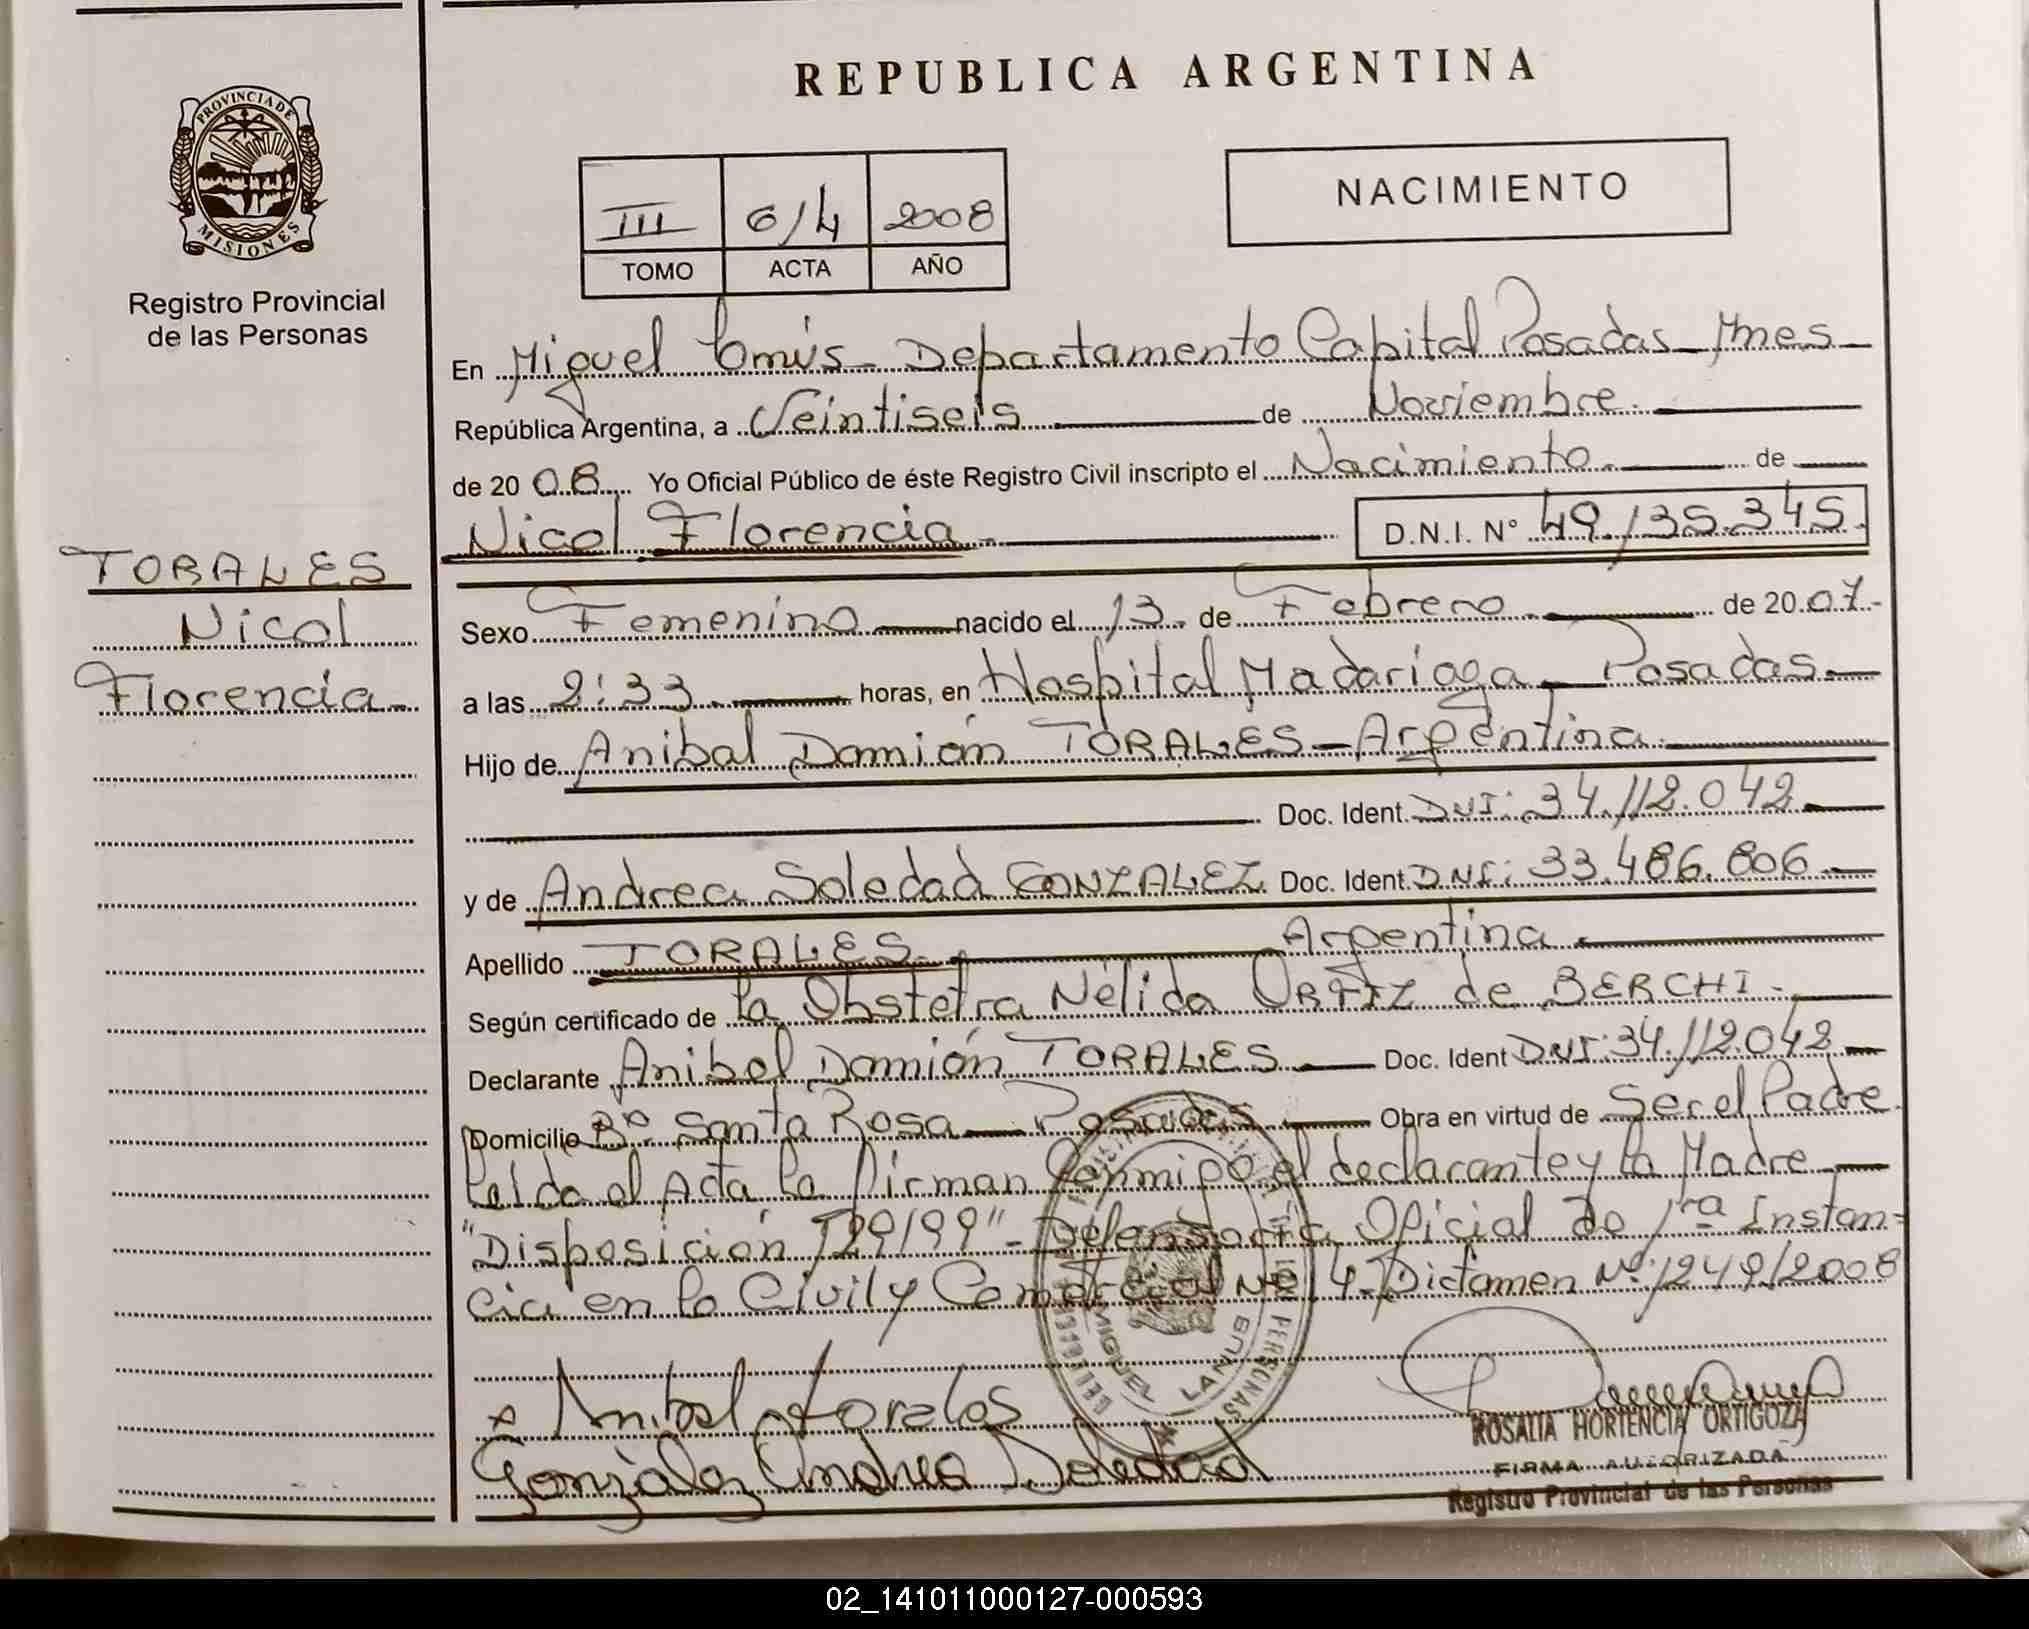 REPUBLICA ARGENTINA
PROVINCIA DE
MISIONES
Registro Provincial
de las Personas
III 614 2008
TOMO ACTA AÑO
NACIMIENTO
En Miguel Lanús - Departamento Capital Posadas - Mnes -
República Argentina, a Veintiseis de Noviembre.
de 2008 Yo Oficial Público de éste Registro Civil inscripto el Nacimiento. de
Nicol Florencia. D.N.I. N° 49.135.345.
TORALES
Nicol
Florencia.
Sexo Femenino nacido el 13. de Febrero. de 20.07.
a las 2:33. horas, en Hospital Madariaga - Posadas.
Hijo de Anibal Damión TORALES - Argentina.
Doc. Ident. DNI: 34.112.042.
y de Andrea Soledad GONZALEZ. Doc. Ident. DNI: 33.486.806.
Apellido TORALES. Argentina.
Según certificado de la Obstetra Nélida ORTIZ de BERCHI.
Declarante Anibal Damión TORALES. Doc. Ident DNI: 34.112.042.
Domicilio B° Santa Rosa - Posadas. Obra en virtud de Ser el Padre.
Leida el Acta la firman Conmigo el declarante y la Madre.
"Disposición 129/99" - Defensoría Oficial de 1ra Instan-
cia en lo Civil y Comercial Nº 4 - Dictamen Nº 1249/2008
Anibal torales
Gonzalez Andrea Soledad
MIGUEL LANUS
PERSONAS
ROSALIA HORTENCIA ORTIGOZA
FIRMA AUTORIZADA
Registro Provincial de las Personas
02_141011000127-000593